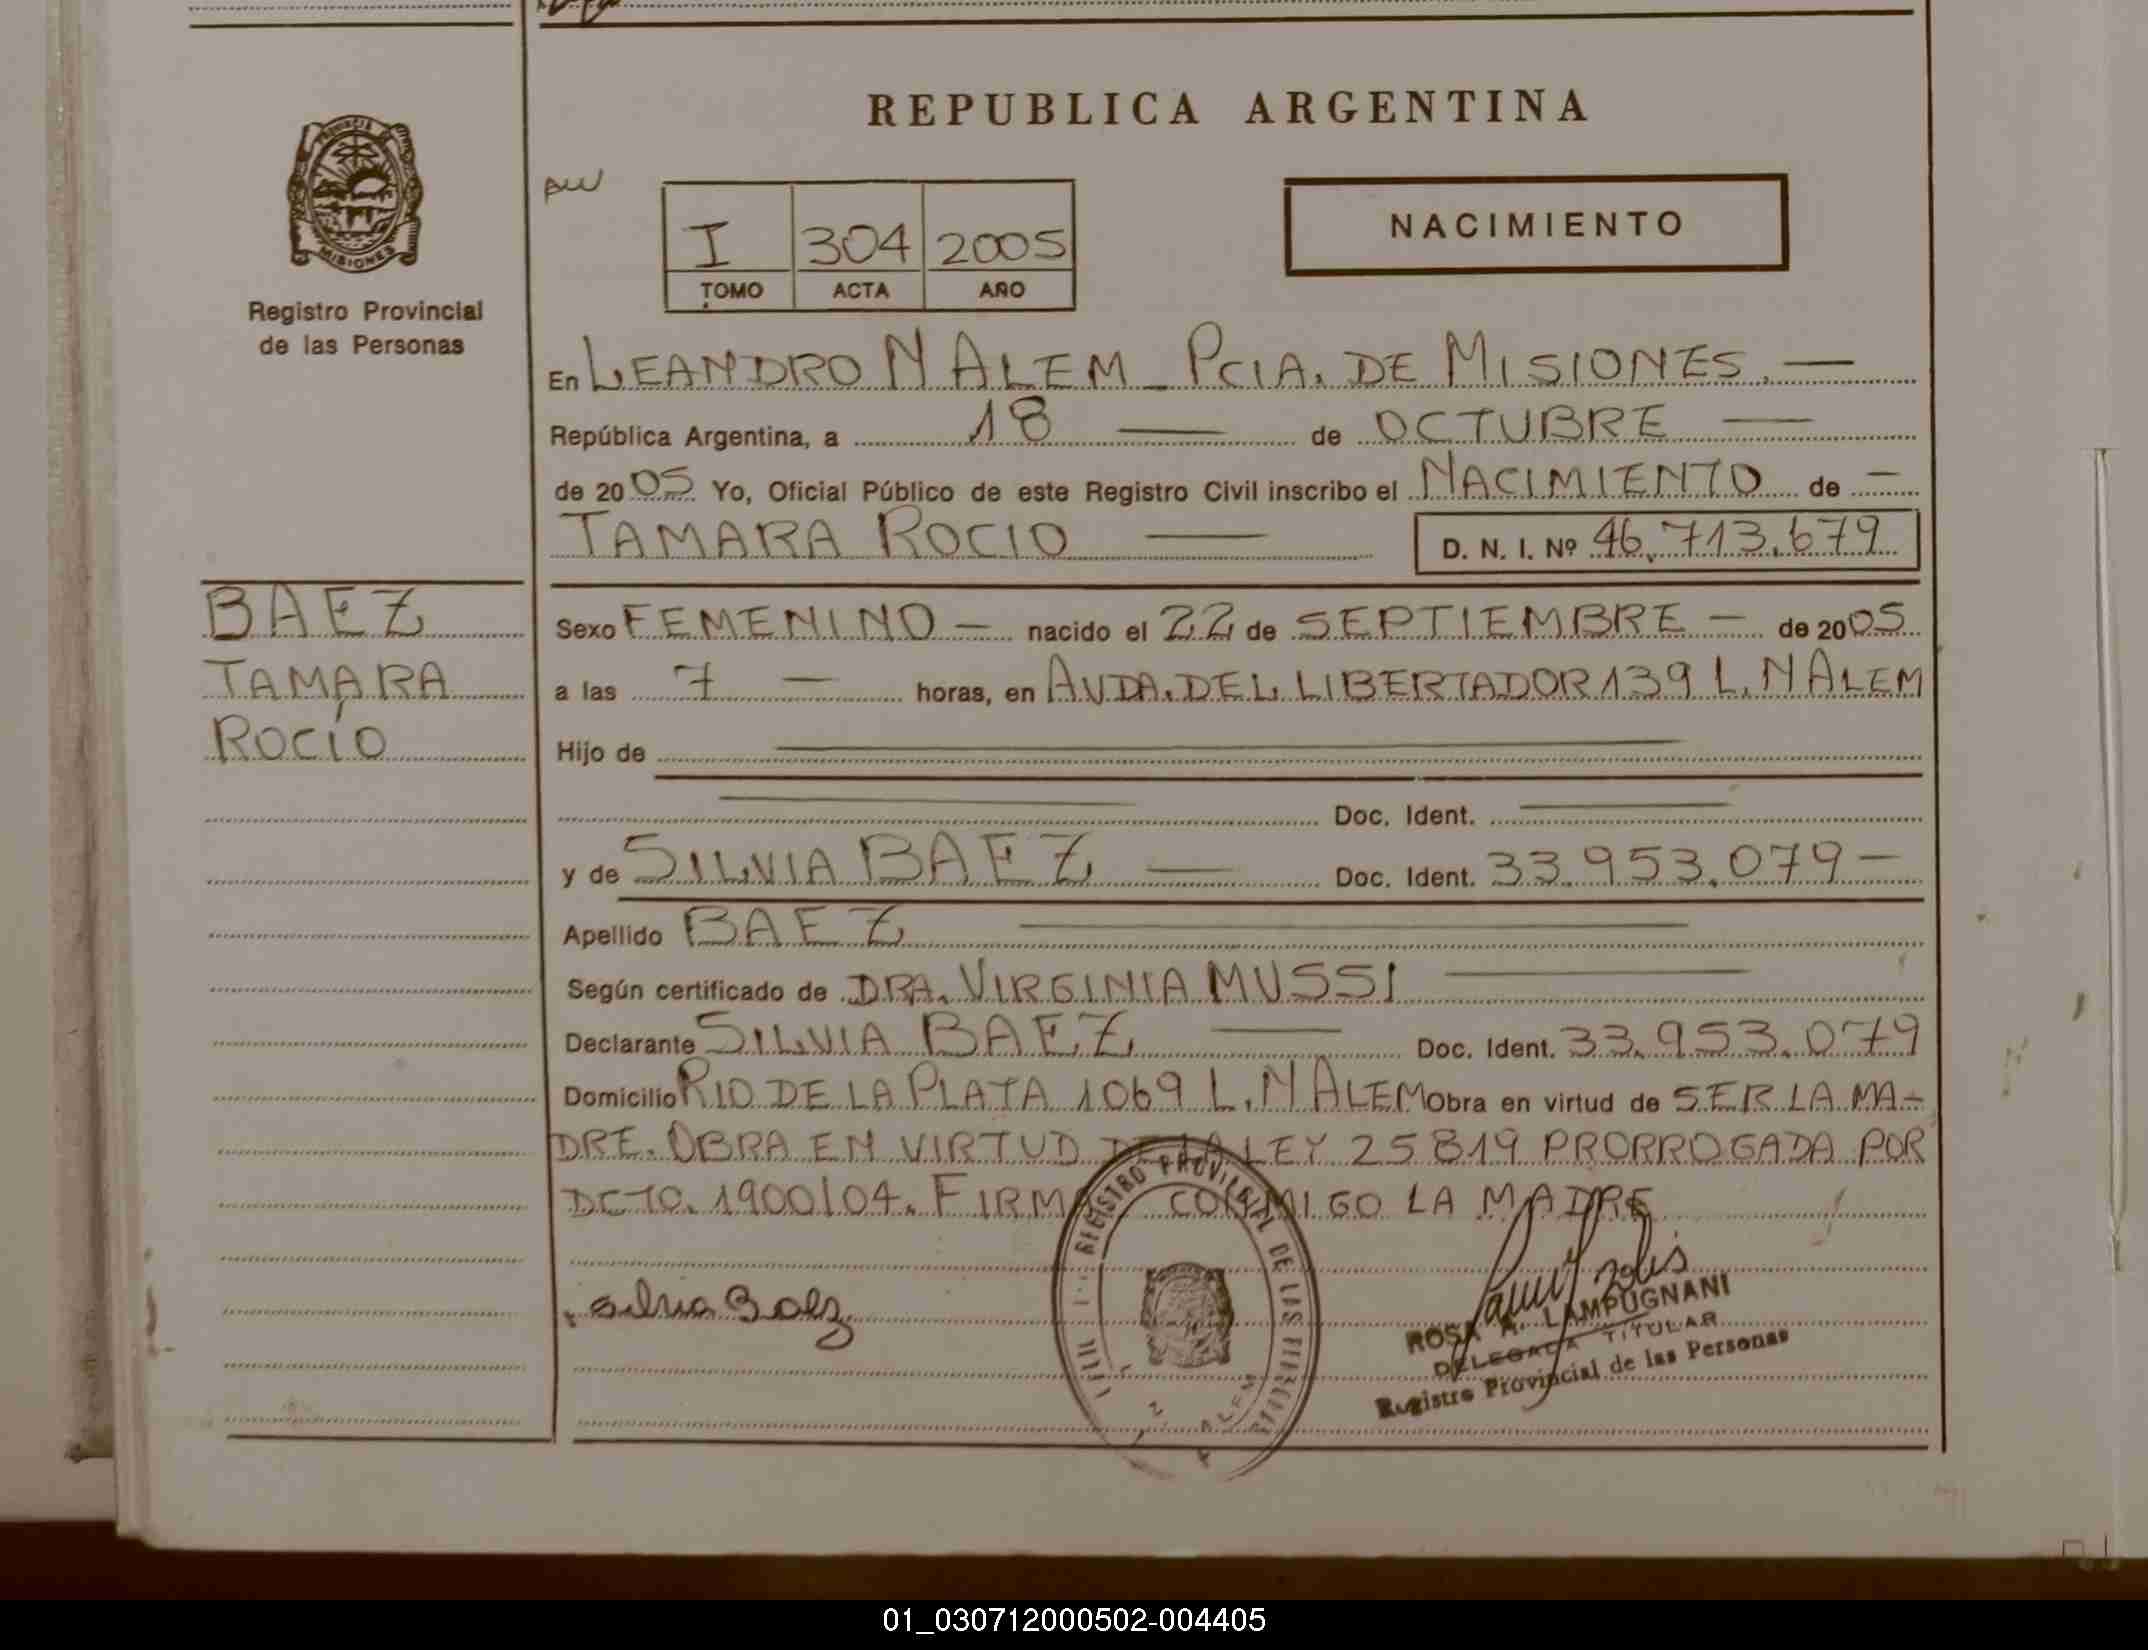 REPUBLICA ARGENTINA
PROVINCIA DE
MISIONES
Registro Provincial
de las Personas
I 304 2005
TOMO ACTA AÑO
NACIMIENTO
En LEANDRO N ALEM - PCIA. DE MISIONES. —
República Argentina, a 18 — de OCTUBRE —
de 2005 Yo, Oficial Público de este Registro Civil inscribo el NACIMIENTO de —
TAMARA ROCIO — D. N. I. Nº 46.713.679
BAEZ
TAMARA
ROCÍO
Sexo FEMENINO — nacido el 22 de SEPTIEMBRE — de 2005
a las 7 — horas, en AVDA. DEL LIBERTADOR 139 L. N ALEM
Hijo de —
— Doc. Ident. —
y de SILVIA BAEZ — Doc. Ident. 33.953.079 —
Apellido BAEZ —
Según certificado de DRA. VIRGINIA MUSSI —
Declarante SILVIA BAEZ — Doc. Ident. 33.953.079
Domicilio RIO DE LA PLATA 1069 L. N ALEM Obra en virtud de SER LA MA-
DRE. OBRA EN VIRTUD DE LA LEY 25819 PRORROGADA POR
DCTO. 1900/04. FIRMA CONMIGO LA MADRE
Silvia Baez
REGISTRO PROVINCIAL DE LAS PERSONAS
ALEM
ROSA A. LAMPUGNANI
DELEGADA TITULAR
Registro Provincial de las Personas
01_030712000502-004405